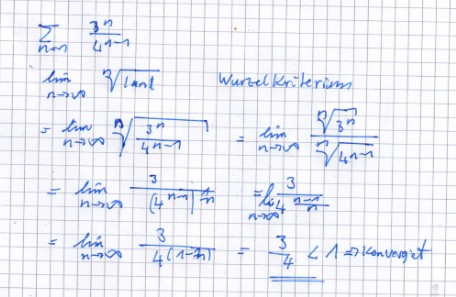 ∑ n=1 3^n / 4^(n-1)
lim n→∞ ⁿ√|an| Wurzelkriterium
= lim n→∞ ⁿ√(3^n / 4^(n-1)) = lim n→∞ ⁿ√(3^n) / ⁿ√(4^(n-1))
= lim n→∞ 3 / (4^(n-1))^(1/n) = lim n→∞ 3 / 4^((n-1)/n)
= lim n→∞ 3 / 4^(1-1/n) = 3/4 < 1 ⇒ Konvergiet